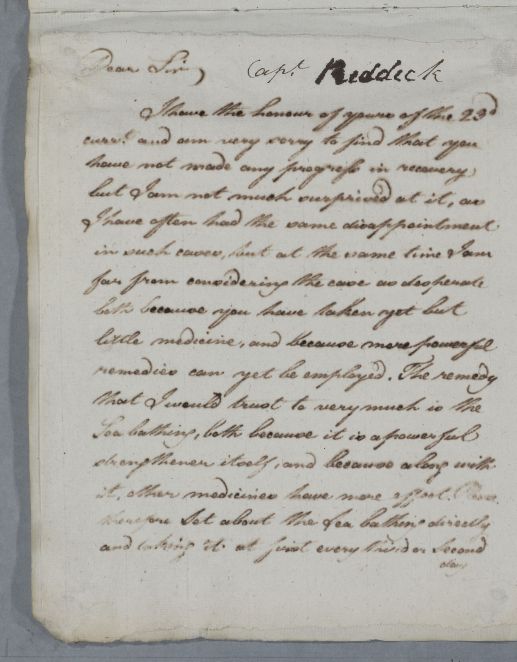 Dear Sir, Capt. Riddick
I have the honour of yours of the 23d
currt. and am very sorry to find that you
have not made any progress in recovery,
but I am not much surprised at it, as
I have often had the same disappointment
in such cases, but at the same time I am
far from considering the case as desperate
both because you have taken yet but
little medicine, and because more powerful
remedies can yet be employed. The remedy
that I would trust to very much is the
Sea bathing, both because it is a powerful
strengthener itself, and because along with
it, other medicines have more effect.
therefore Set about the Sea bathing directly
and taking it at first every third or Second
day